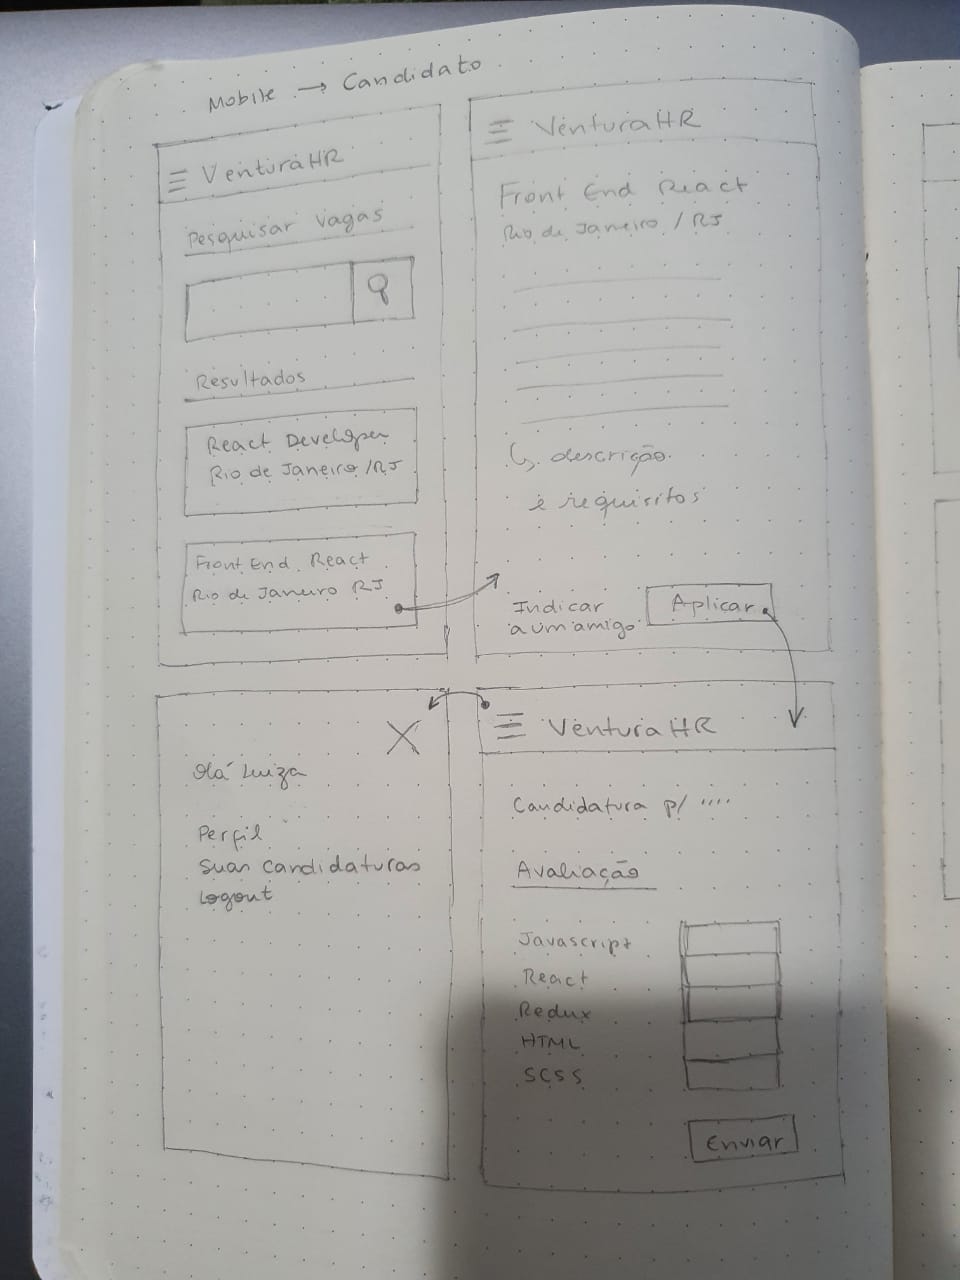 Mobile → Candidato
VenturaHR
Pesquisar Vagas
Resultados
React Developer
Rio de Janeiro/RJ
Front End React
Rio de Janeiro RJ
VenturaHR
Front End React
Rio de Janeiro / RJ
descrição
e requisitos
Indicar
a um amigo
Aplicar
Olá Luiza
Perfil
Suas candidaturas
Logout
VenturaHR
Candidatura p/ ....
Avaliação
Javascript
React
Redux
HTML
SCSS
Enviar